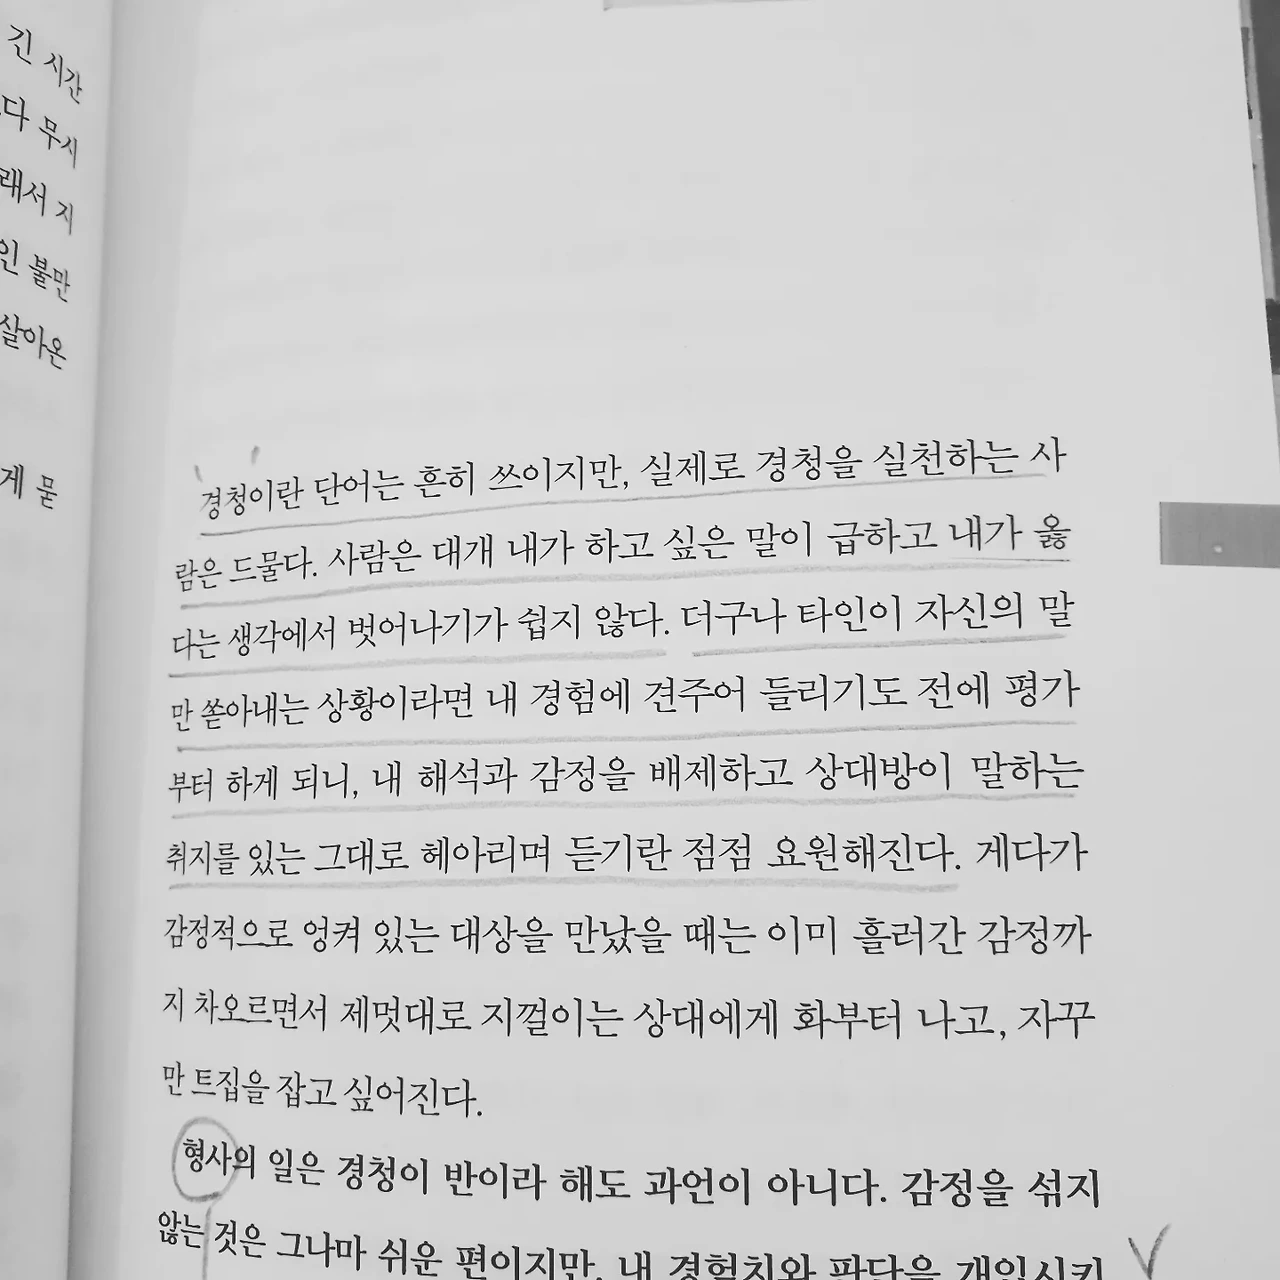 긴 시간
다 무시
래서 지
인 불만
살아온
게 묻
경청이란 단어는 흔히 쓰이지만, 실제로 경청을 실천하는 사
람은 드물다. 사람은 대개 내가 하고 싶은 말이 급하고 내가 옳
다는 생각에서 벗어나기가 쉽지 않다. 더구나 타인이 자신의 말
만 쏟아내는 상황이라면 내 경험에 견주어 들리기도 전에 평가
부터 하게 되니, 내 해석과 감정을 배제하고 상대방이 말하는
취지를 있는 그대로 헤아리며 듣기란 점점 요원해진다. 게다가
감정적으로 엉켜 있는 대상을 만났을 때는 이미 흘러간 감정까
지 차오르면서 제멋대로 지껄이는 상대에게 화부터 나고, 자꾸
만 트집을 잡고 싶어진다.
형사의 일은 경청이 반이라 해도 과언이 아니다. 감정을 섞지
않는 것은 그나마 쉬운 편이지만, 내 경험치와 판단을 개입시키